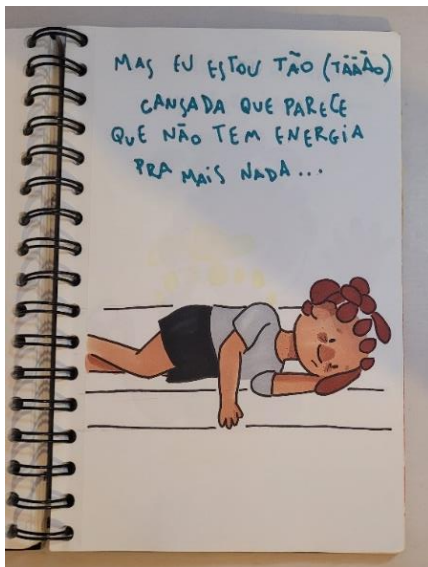 MAS EU ESTOU TÃO (TÃÃÃO)
CANSADA QUE PARECE
QUE NÃO TEM ENERGIA
PRA MAIS NADA...